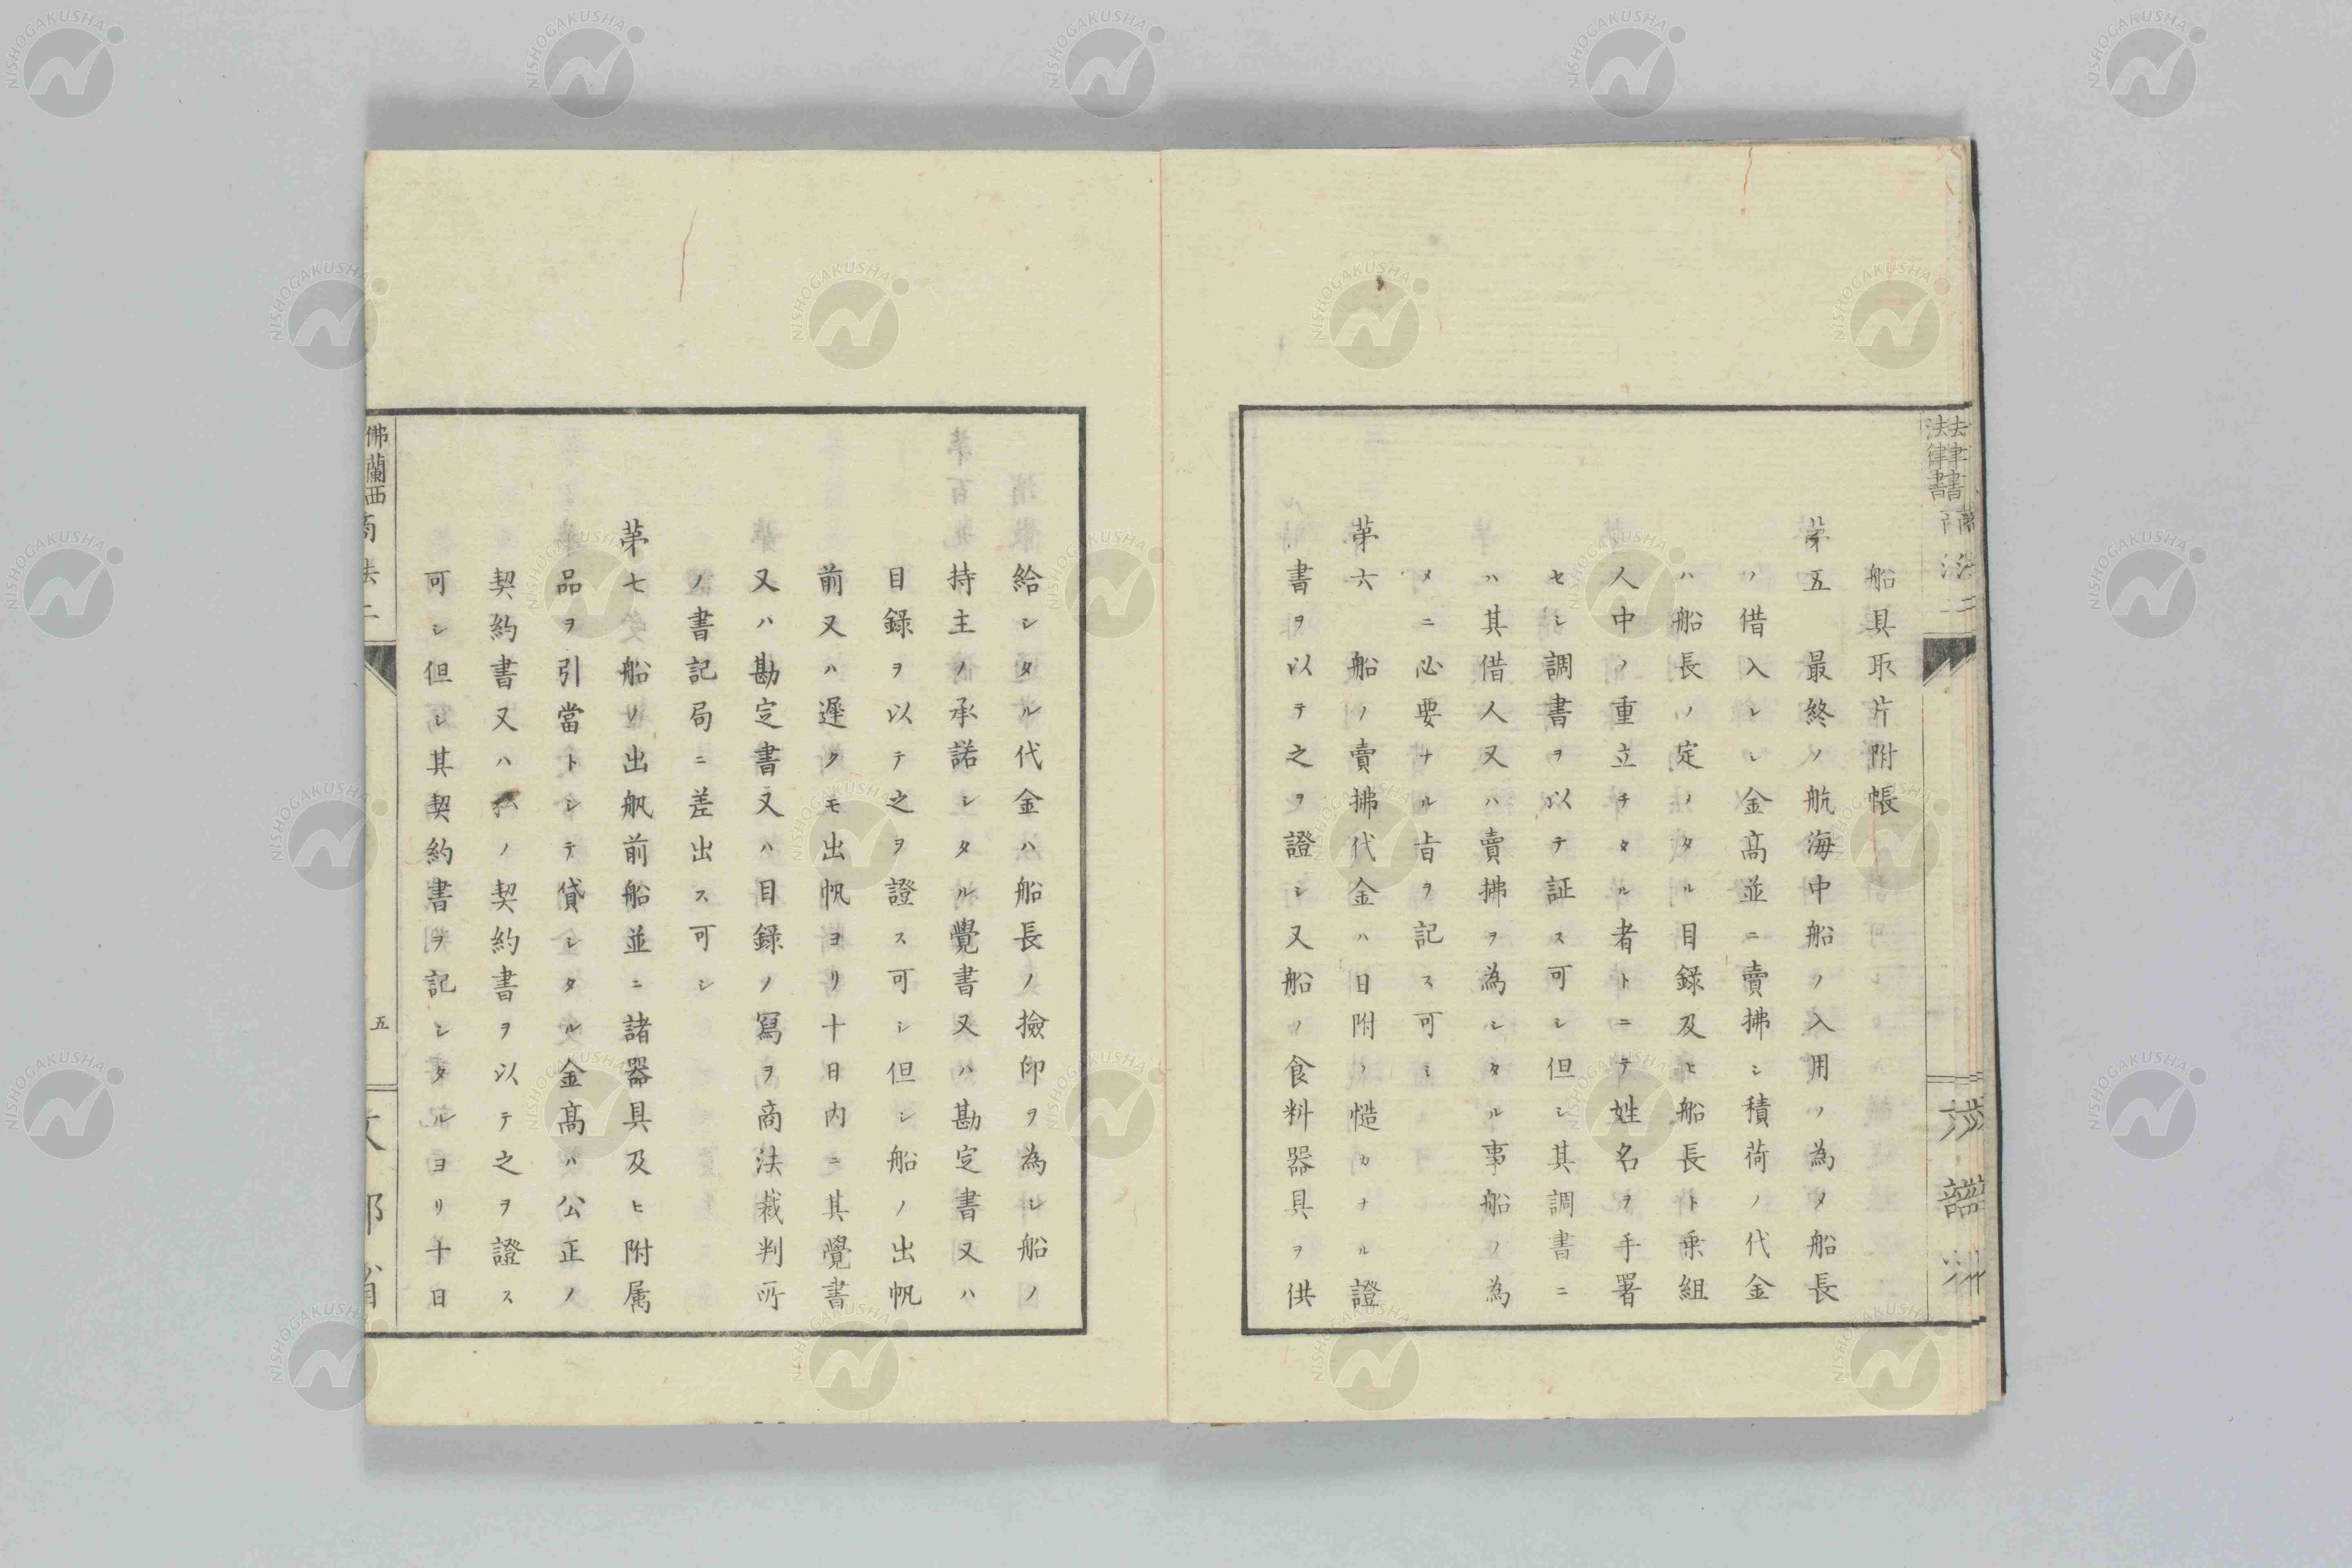 船具取片附帳
第五　最終ノ航海中船ノ入用ノ為メ船長
ノ借入レシ金高並ニ賣拂シ積荷ノ代金
ハ船長ノ定メタル目録及ヒ船長ト乗組
人中ノ重立チタル者トニテ姓名ヲ手署
セシ調書ヲ以テ証ス可シ但シ其調書ニ
ハ其借人又ハ賣拂ヲ為シタル事船ノ為
メニ必要ナル旨ヲ記ス可シ
第六　船ノ賣拂代金ハ日附ノ慥カナル證
書ヲ以テ之ヲ證シ又船ノ食料器具ヲ供
給シタル代金ハ船長ノ撿印ヲ為シ船ノ
持主ノ承諾シタル覺書又ハ勘定書又ハ
目録ヲ以テ之ヲ證ス可シ但シ船ノ出帆
前又ハ遲クモ出帆ヨリ十日内ニ其覺書
又ハ勘定書又ハ目録ノ寫ヲ商法裁判所
ノ書記局ニ差出ス可シ
第七　船ノ出帆前船並ニ諸器具及ヒ附属
品ヲ引當トシテ貸シタル金高ハ公正ノ
契約書又ハ私ノ契約書ヲ以テ之ヲ證ス
可シ但シ其契約書ヲ記シタルヨリ十日
佛蘭西
五
NISHOGAKUSHA